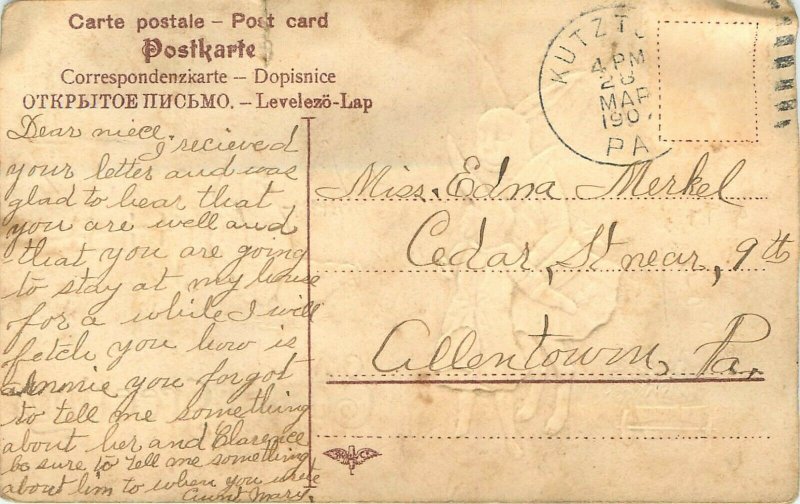 Carte postale – Post card
Postkarte
Correspondenzkarte – Dopisnice
ОТКРЫТОЕ ПИСЬМО. – Levelező-Lap
KUTZT
4 PM
28
MAR
190
PA
Dear niece.
I recieved
your letter and was
glad to hear that
you are well and
that you are going
to stay at my house
for a while I will
fetch you how is
annie you forgot
to tell me something
about her and Clarence
be sure to tell me something
about him to when you write
Aunt Mary.
Miss. Edna Merkel
Cedar, St near, 9th
Allentown, Pa.